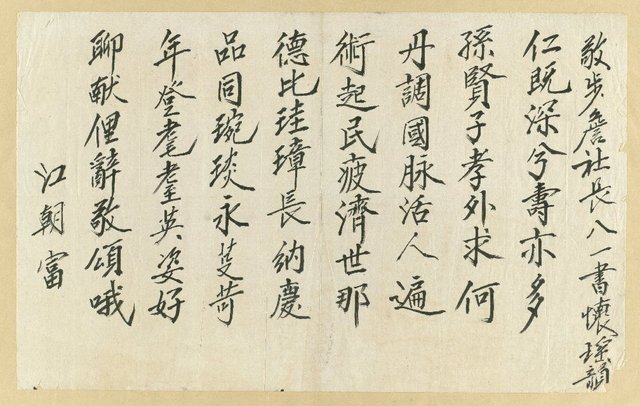 敬步詹社長八一書懷瑤韻
仁既深兮壽亦多
孫賢子孝外求何
丹調國脈活人遍
術起民疲濟世那
德比珪璋長納慶
品同琬琰永芟苛
年登耄耋英姿好
聊献俚辭敬頌哦
江朝富